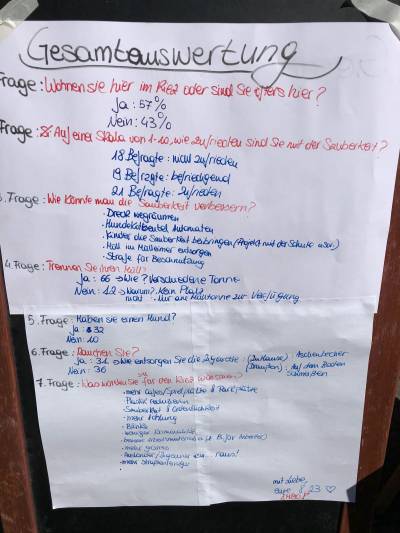 Gesamtauswertung
Frage: Wohnen sie hier im Kiez oder sind Sie öfters hier?
Ja: 57%
Nein: 43%
Frage: Auf einer Skala von 1-10, wie zufrieden sind Sie mit der Sauberkeit?
18 Befragte: nicht zufrieden
19 Befragte: befriedigend
21 Befragte: zufrieden
Frage: Wie könnte man die Sauberkeit verbessern?
· Dreck wegräumen
· Hundekotbeutel Automaten
· Kinder die Sauberkeit beibringen (Projekt mit der Schule
· Müll im Mülleimer entsorgen
· Strafe für Beschmutzung
4. Frage: Trennen Sie ihren Müll?
Ja: 66 → Wie? Verschiedene Tonne
Nein: 12 → Warum? Kein Platz
nicht nur eine Mülltonne zur Verfügung
5. Frage: Haben sie einen Hund?
Ja: 32
Nein: 10
6. Frage: Rauchen Sie?
Ja: 31 → Wie entsorgen Sie die Zigarette: (Zuhause) Aschenbecher
(Draußen): Auf dem Boden
Nein: 36
schmeißen
7. Frage: Was würden Sie für den Kiez wünschen?
· mehr Spielplätze & Parkplätze
· Plastik reduzieren
· Sauberkeit &
· mehr
· Bänke
· weniger Kriminalität
· mehr grünes
· raus!
· mehr
mit liebe,
eure 8.23 ♡